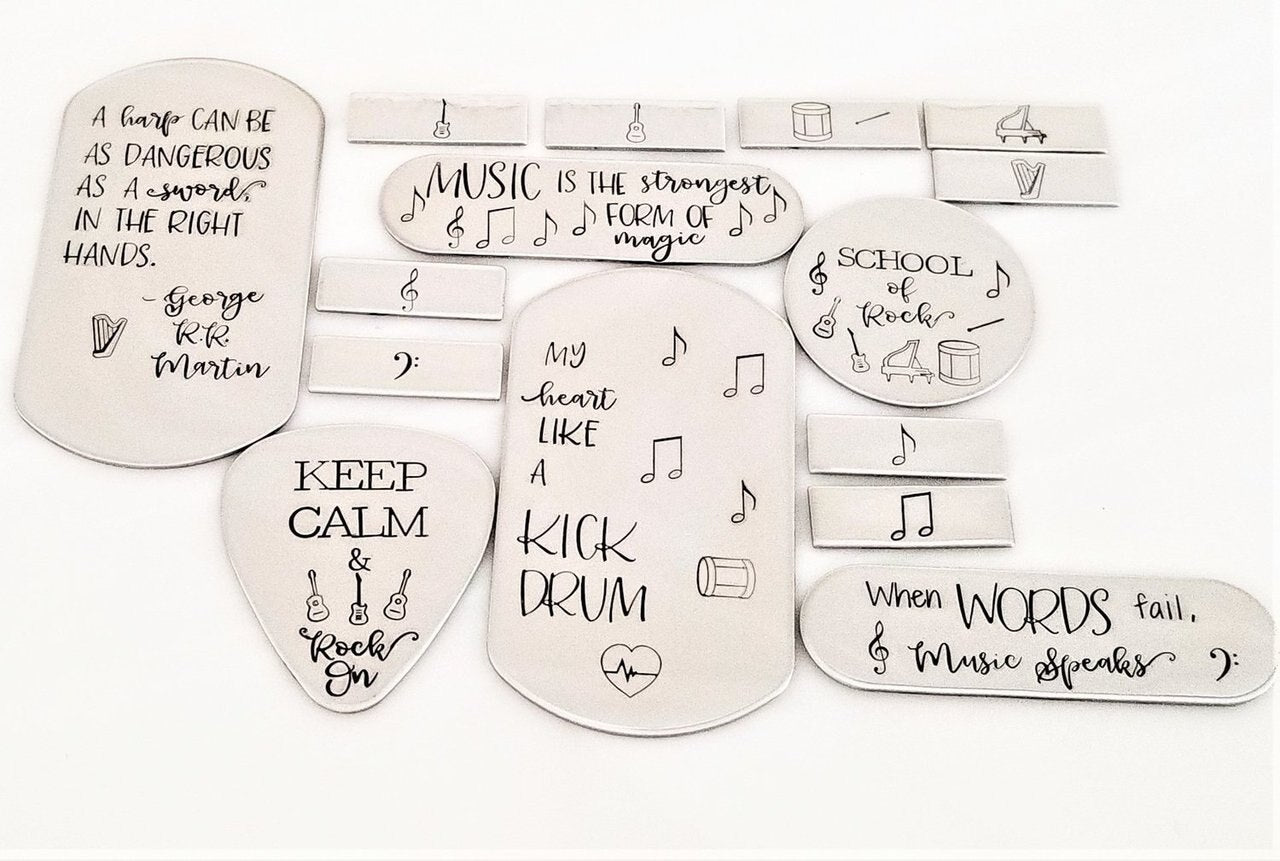 A harp CAN BE
AS DANGEROUS
AS A sword,
IN THE RIGHT
HANDS.
- George
R.R.
Martin
MUSIC IS THE strongest
FORM OF
magic
SCHOOL
of
Rock
KEEP
CALM
&
Rock
On
MY
heart
LIKE
A
KICK
DRUM
When WORDS fail,
Music Speaks